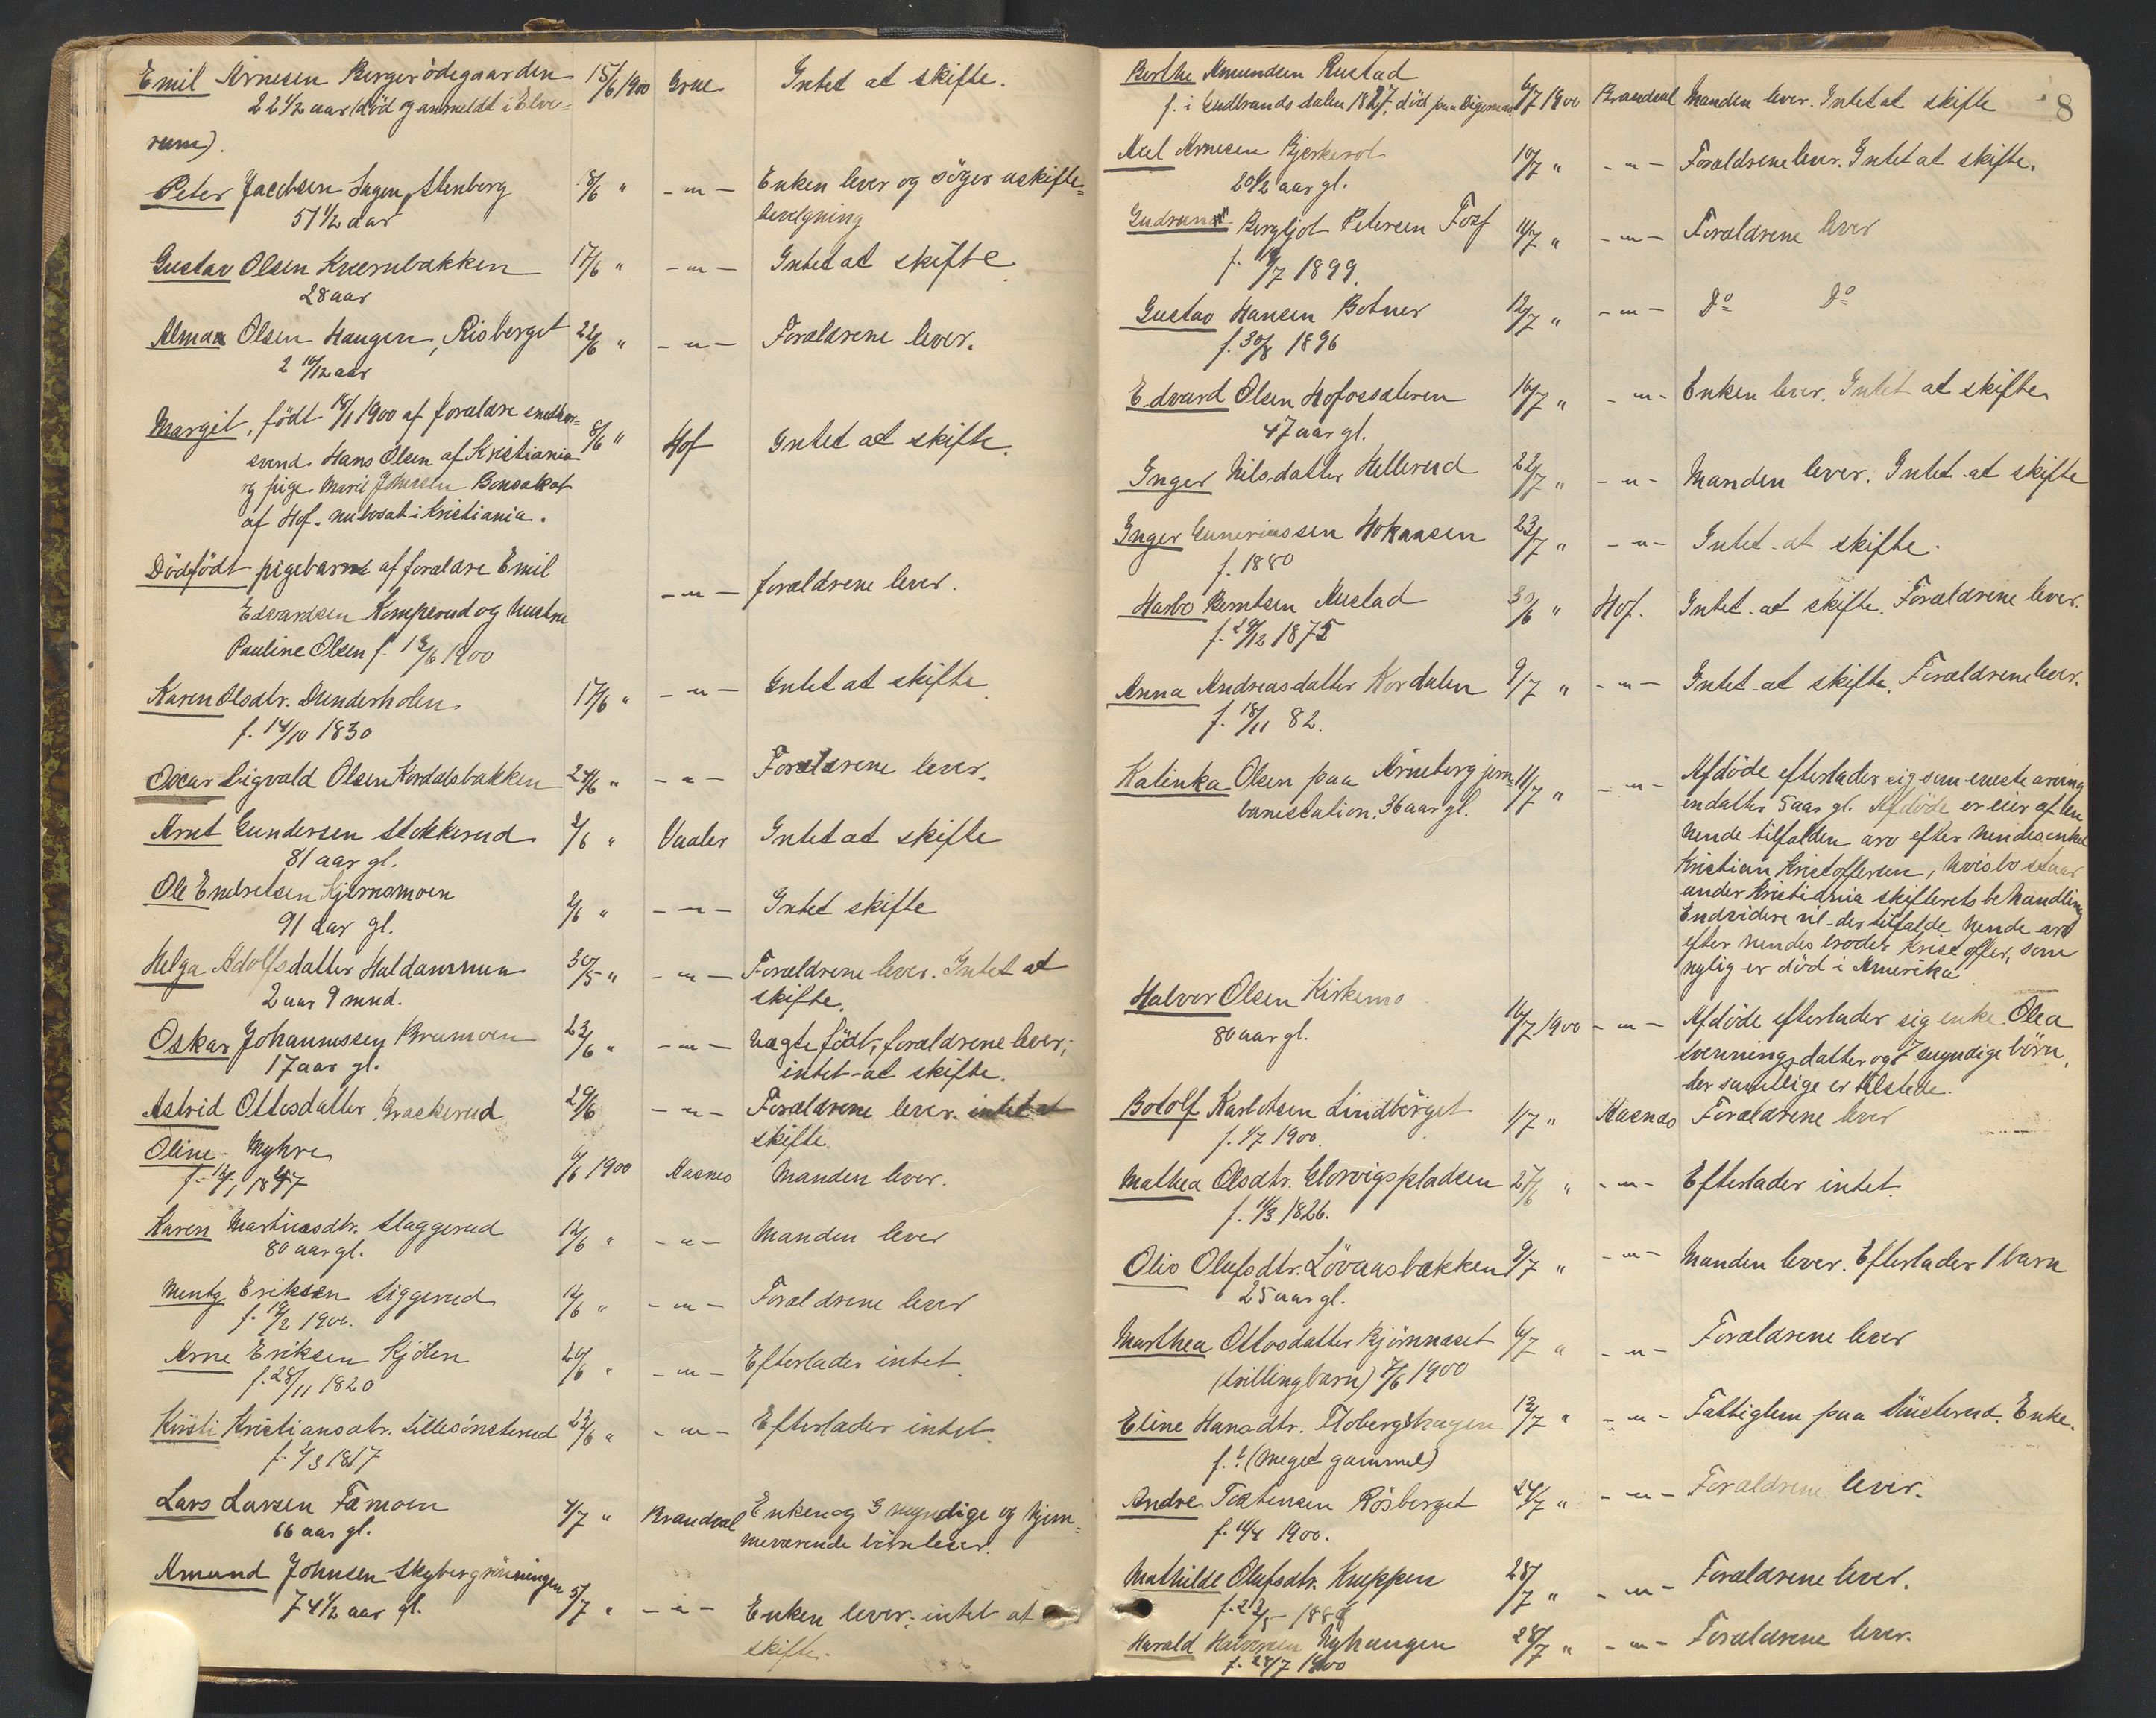 Emil Arnesen Bergersödegaarden 15/6 1900 Grue Intet at skifte.
22 1/2 aar (död og anmeldt i Elve-
rum).
Peter Jacobsen Hagen, Stenberg 8/6 " -"- Enken lever og söger uskifte-
51 1/2 aar bevilgning
Gustav Olsen Kvernbakken 17/6 " -"- Intet at skifte
28 aar
Alma Olsen Haugen, Risberget 22/6 " -"- Forældrene lever.
2 10/12 aar
Margit, födt 18/1 1900 af forældre
svend Hans Olsen af Kristiania 8/6 " Hof Intet at skifte.
og pige Marie Johnsen
af Hof. nu bosat i Kristiania.
Dödfödt pigebarn af forældre Emil
Edvardsen Komperud og hustru -"- forældrene lever.
Pauline Olsen f. 13/6 1900
Karen Olsdtr. Dunderholen 17/6 " -"- Intet at skifte
f. 14/10 1830
Oscar Sigvald Olsen Kordalsbakken 24/6 " -"- Forældrene lever.
Arnt Gundersen Stokkerud 2/6 " Vaaler Intet at skifte
81 aar gl.
Ole Embretsen Kjernsmoen 2/6 " -"- Intet skifte
91 aar gl.
Helga Adolfsdatter Haldammen 30/5 " -"- Forældrene lever. Intet at
2 aar 9 mnd. skifte.
Oskar Johannessen Brumoen 23/6 " -"- Uægte födt; forældrene lever;
17 aar gl. intet at skifte.
Astrid Ottesdatter 29/6 -"- Forældrene lever. intet at
skifte
Oline Myhre 6/6 1900 Aasnes Manden lever.
Karen Martinsdtr. Slaggerud 12/6 " -"- Manden lever
80 aar gl.
Menty Eriksen Siggerud 14/6 " -"- Forældrene lever
f. 19/2 1900.
Arne Eriksen Kjölen 20/6 " -"- Efterlader intet.
f. 28/11 1820
Kirsti Kristiansdtr. Lillesönsterud 23/6 " -"- Efterlader intet.
f. 4/3 1817
Lars Larsen Tæmoen 4/7 " Brandval Enken og 3 myndige og hjem-
66 aar gl. meværende börn lever.
Amund Johnsen Skybergrönningen 5/7 " -"- Enken lever. intet at
74 1/2 aar gl. skifte.
8
Berthe Amundsen Rustad
f. i Gudbrandsdalen 1827, död paa Digernæs 6/7 1900 Brandval Manden lever. Intet at skifte
Axel Arnesen Bjerkerot 10/7 " -"- Forældrene lever. Intet at skifte.
20 1/2 aar gl.
Gudrun Bergljot Petersen Fosf 11/7 " -"- Forældrene lever
1899.
Gustav Hansen Botner 12/7 " -"- Do Do
f. 30/8 1896
Edvard Olsen Hofossæteren 16/7 " -"- Enken lever. Intet at skifte
47 aar gl.
Inger Nilsdatter Hellerud 22/7 " -"- Manden lever. Intet at skifte
Inger Gunerinssen Hokaasen 23/7 " -"- Intet at skifte.
f. 1880
Harbo Berntsen Rustad 30/6 " Hof. Intet at skifte. Forældrene lever.
f. 29/12 1875
Anna Andreasdatter Kordalen 9/7 " -"- Intet at skifte. Forældrene lever.
f. 18/11 82.
Kalinka Olsen paa Arneberg jern- 11/7 " -"- Afdöde efterlader sig som eneste arving
banestation, 36 aar gl. en datter 5 aar gl. Afdöde er eier af en
hende tilfalden arv efter hendes onkel
Kristian Kristoffersen, hvis bo staar
under Kristiania skifterets behandling
Endvidere vil der tilfalde hende arv
efter hendes broder Kristoffer, som
nylig er död i Amerika.
Halvor Olsen Kirkemo 16/7 1900 -"- Afdöde efterlader sig enke Olea
80 aar gl. Svenningsdatter og 7 myndige börn,
der samtlige er tilstede.
Botolf Karlotsen Lindberget 1/7 " Aasnæs Forældrene lever
f. 1/7 1900.
Mathea Olsdtr. Glorvigspladsen 27/6 " -"- Efterlader intet.
f. 11/3 1826.
Olis Olufsdtr. Lövaasbakken 9/7 " -"- Manden lever. Efterlader 1 barn
25 aar gl.
Marthea Ottosdatter Björnnæset 6/7 " -"- Forældrene lever
(tvillingbarn) 7/6 1900
Eline Hansdtr. Floberghagen 13/7 " -"- Fattiglem paa Sönsterud. Enke.
f. ? (meget gammel)
Andre Tostensen Rösberget 24/7 " -"- Forældrene lever.
f. 11/4 1900.
Mathilde Olufsdtr. Kneppen 28/7 " -"- Forældrene lever.
f. 22/5
Harald Halvorsen Nyhaugen 28/7 " -"- Forældrene lever.
f. 28/7 1900